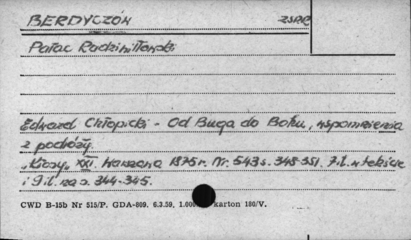 BERDYCZÓW ZSRR
Pałac Radziwiłłowski
Edward Chłopicki - Od Buga do Bohu, wspomnienia
z podróży.
"Kłosy" XXI. Warszawa 1875 r. Nr. 543 s. 348-351. 7 il. w tekście
i 9 il. na s. 344-345.
CWD B-15b Nr 515/P. GDA-809. 6.3.59, karton 180/V.